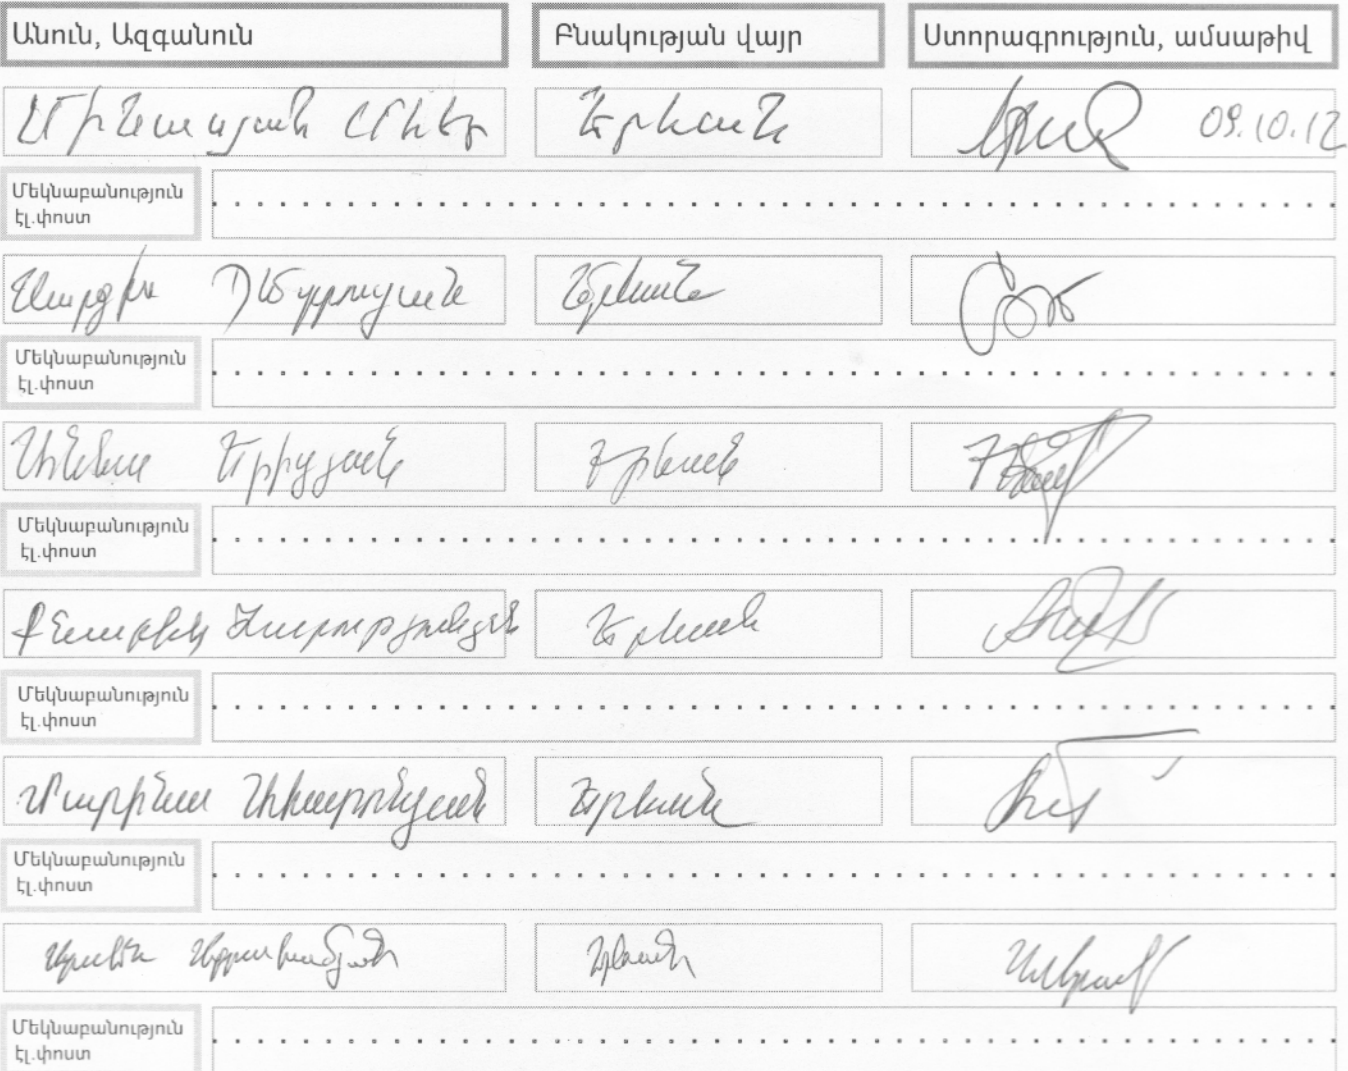 Անուն, Ազգանուն Բնակության վայր Ստորագրություն, ամսաթիվ
Մինասյան Մհեր Երևան 09.10.12
Մեկնաբանություն
էլ.փոստ
Սարգիս Պետրոսյան Երևան
Մեկնաբանություն
էլ.փոստ
Աննա Երիցյան Երևան
Մեկնաբանություն
էլ.փոստ
Հարությունյան Երևան
Մեկնաբանություն
էլ.փոստ
Մարինա Ահարոնյան Երևան
Մեկնաբանություն
էլ.փոստ
Արսեն Աբրահամյան Երևան
Մեկնաբանություն
էլ.փոստ